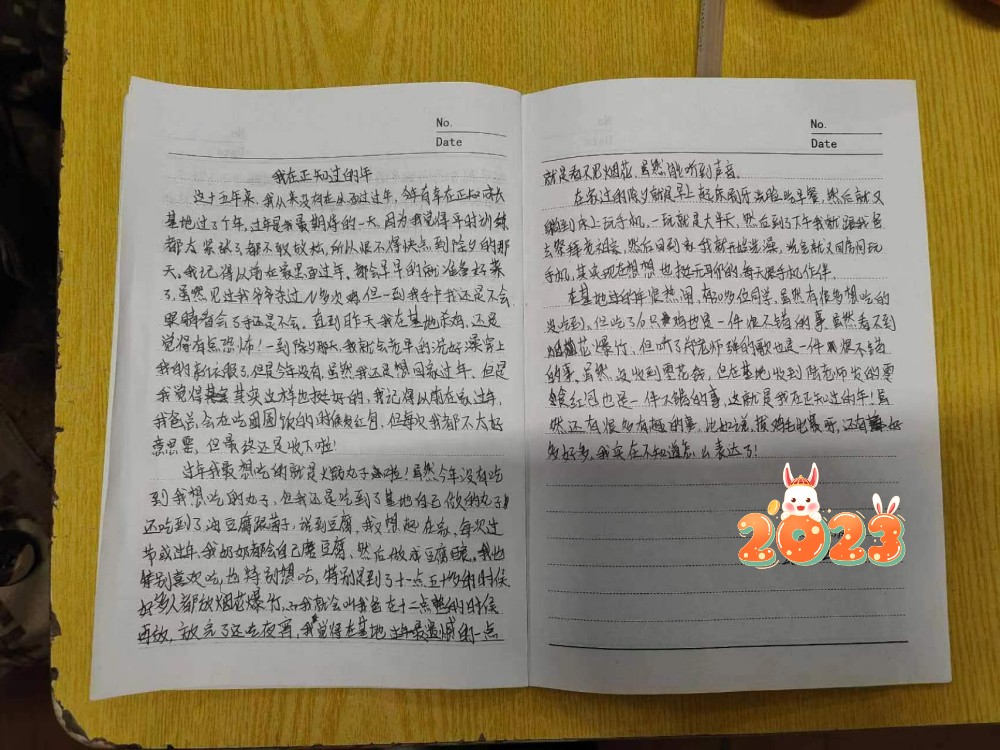 No.
Date
我在正知过的年
这十五年来,我从来没有在外面过过年,今年有幸在正知
基地过了个年,过年是我最期待的一天,因为我觉得平时训练
都太紧张了都不敢放松,所以恨不得快点到除夕的那
天。我记得以前在家里面过年,都会早早的前准备好菜
了,虽然见过我爷爷杀过N多次鸡但一到我手中我还是不会,
眼睛看会了手还是不会。直到昨天我在基地杀鸡,还是
觉得有点恐怖!一到除夕那天,我就会老早的洗好澡穿上
我的新衣服了,但是今年没有,虽然我还是想回家过年,但是
我觉得其实这样也挺好的,我记得以前在家过年,
我爸爸会在吃团圆饭的时候发红包,但每次我都不太好
意思要,但最终还是收下啦!
过年我最想吃的就是丸子啦!虽然今年没有吃
到我想吃的丸子,但我还是吃到了基地自己做的丸子,
还吃到了油豆腐跟菌子,说到豆腐,我又想起在家,每次过
节或过年,我奶奶都会自己磨豆腐,然后做成豆腐,我也
特别喜欢吃,也特别想吃,特别是到了十一点五十多的时候
好多人都放烟花爆竹,我就会叫我爸在十二点整的时候
再放,放完了还吃夜宵,我觉得在基地过年最遗憾的一点
No.
Date
就是看不见烟花,虽然能听到声音。
在家过的除夕就是早上起床刷牙洗脸吃早餐,然后就又
躺到床上玩手机,一玩就是大半天,然后到了下午我就跟我爸
去祭拜老祖宗,然后回到家我就开始洗澡,洗完就又回房间玩
手机,其实现在想想也挺无聊的,每天跟手机作伴。
在基地过的年很热闹,有50多位同学,虽然有很多想吃的
没吃到,但吃了6只鸡也是一件很不错的事,虽然看不到
烟花爆竹,但听了老师弹的歌也是一件很不错
的事,虽然没收到零花钱,但在基地收到陈老师发的零
食红包也是一件不错的事,这就是我在正知过的年!虽
然还有很多有趣的事,比如说,拔鸡毛比赛呀,还有好
多好多,我实在不知道怎么表达了!
2023